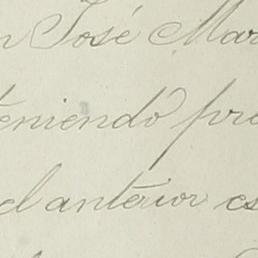 n José Mar
teniendo pro
el anterior es